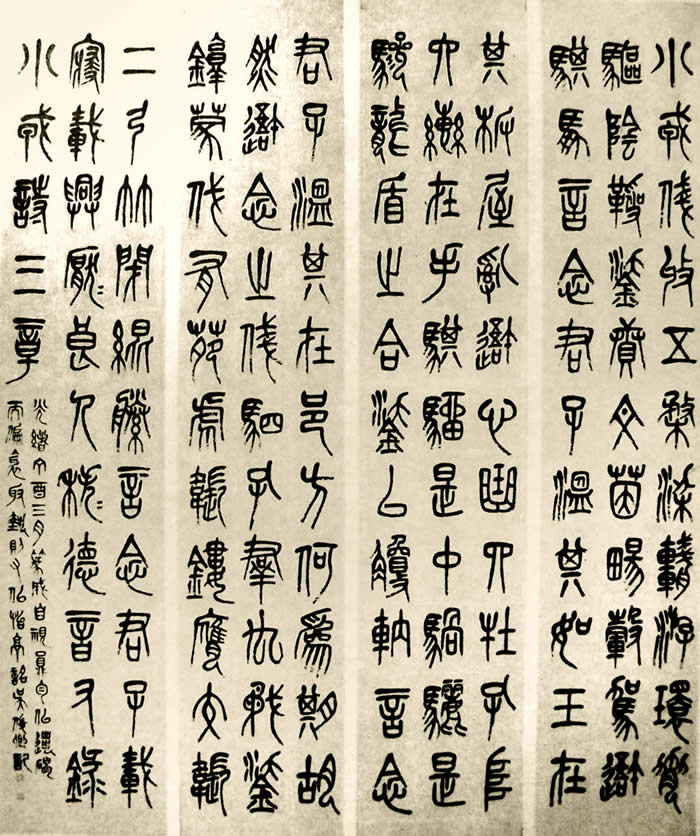 小戎俴收五楘梁輈游環脅
驅陰靷鋈續文茵暢轂駕我
騏馵言念君子溫其如玉在
其板屋亂我心曲四牡孔阜
六轡在手騏駵是中騧驪是
驂龍盾之合鋈以觼軜言念
君子溫其在邑方何為期胡
然我念之俴駟孔群厹矛鋈
錞蒙伐有苑虎韔鏤膺交韔
二弓竹閉緄縢言念君子載
寢載興厭〻良人秩〻德音又錄
小戎詩三章
光緒丁酉三月篆成自視
吳俊卿記